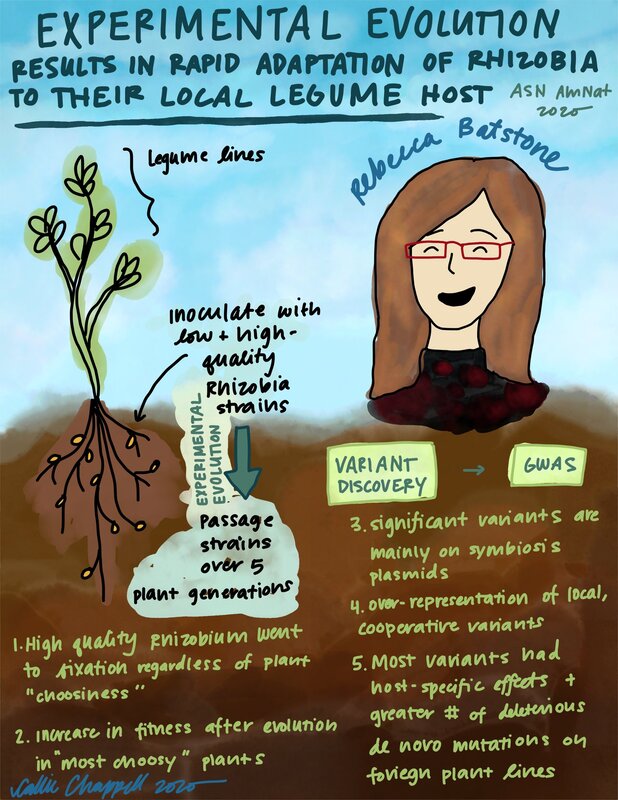 EXPERIMENTAL EVOLUTION
RESULTS IN RAPID ADAPTATION OF RHIZOBIA
TO THEIR LOCAL LEGUME HOST
ASN AmNat
2020
Rebecca Batstone
legume lines
inoculate with
low + high-
quality
Rhizobia
strains
EXPERIMENTAL
EVOLUTION
Passage
strains
over 5
plant generations
1. High quality rhizobium went
to fixation regardless of plant
"choosiness"
2. Increase in fitness after evolution
in "most choosy" plants
VARIANT
DISCOVERY
→
GWAS
3. significant variants are
mainly on symbiosis
plasmids
4. over-representation of local,
cooperative variants
5. Most variants had
host-specific effects +
greater # of deleterious
de novo mutations on
foriegn plant lines
Callie Chappell 2020